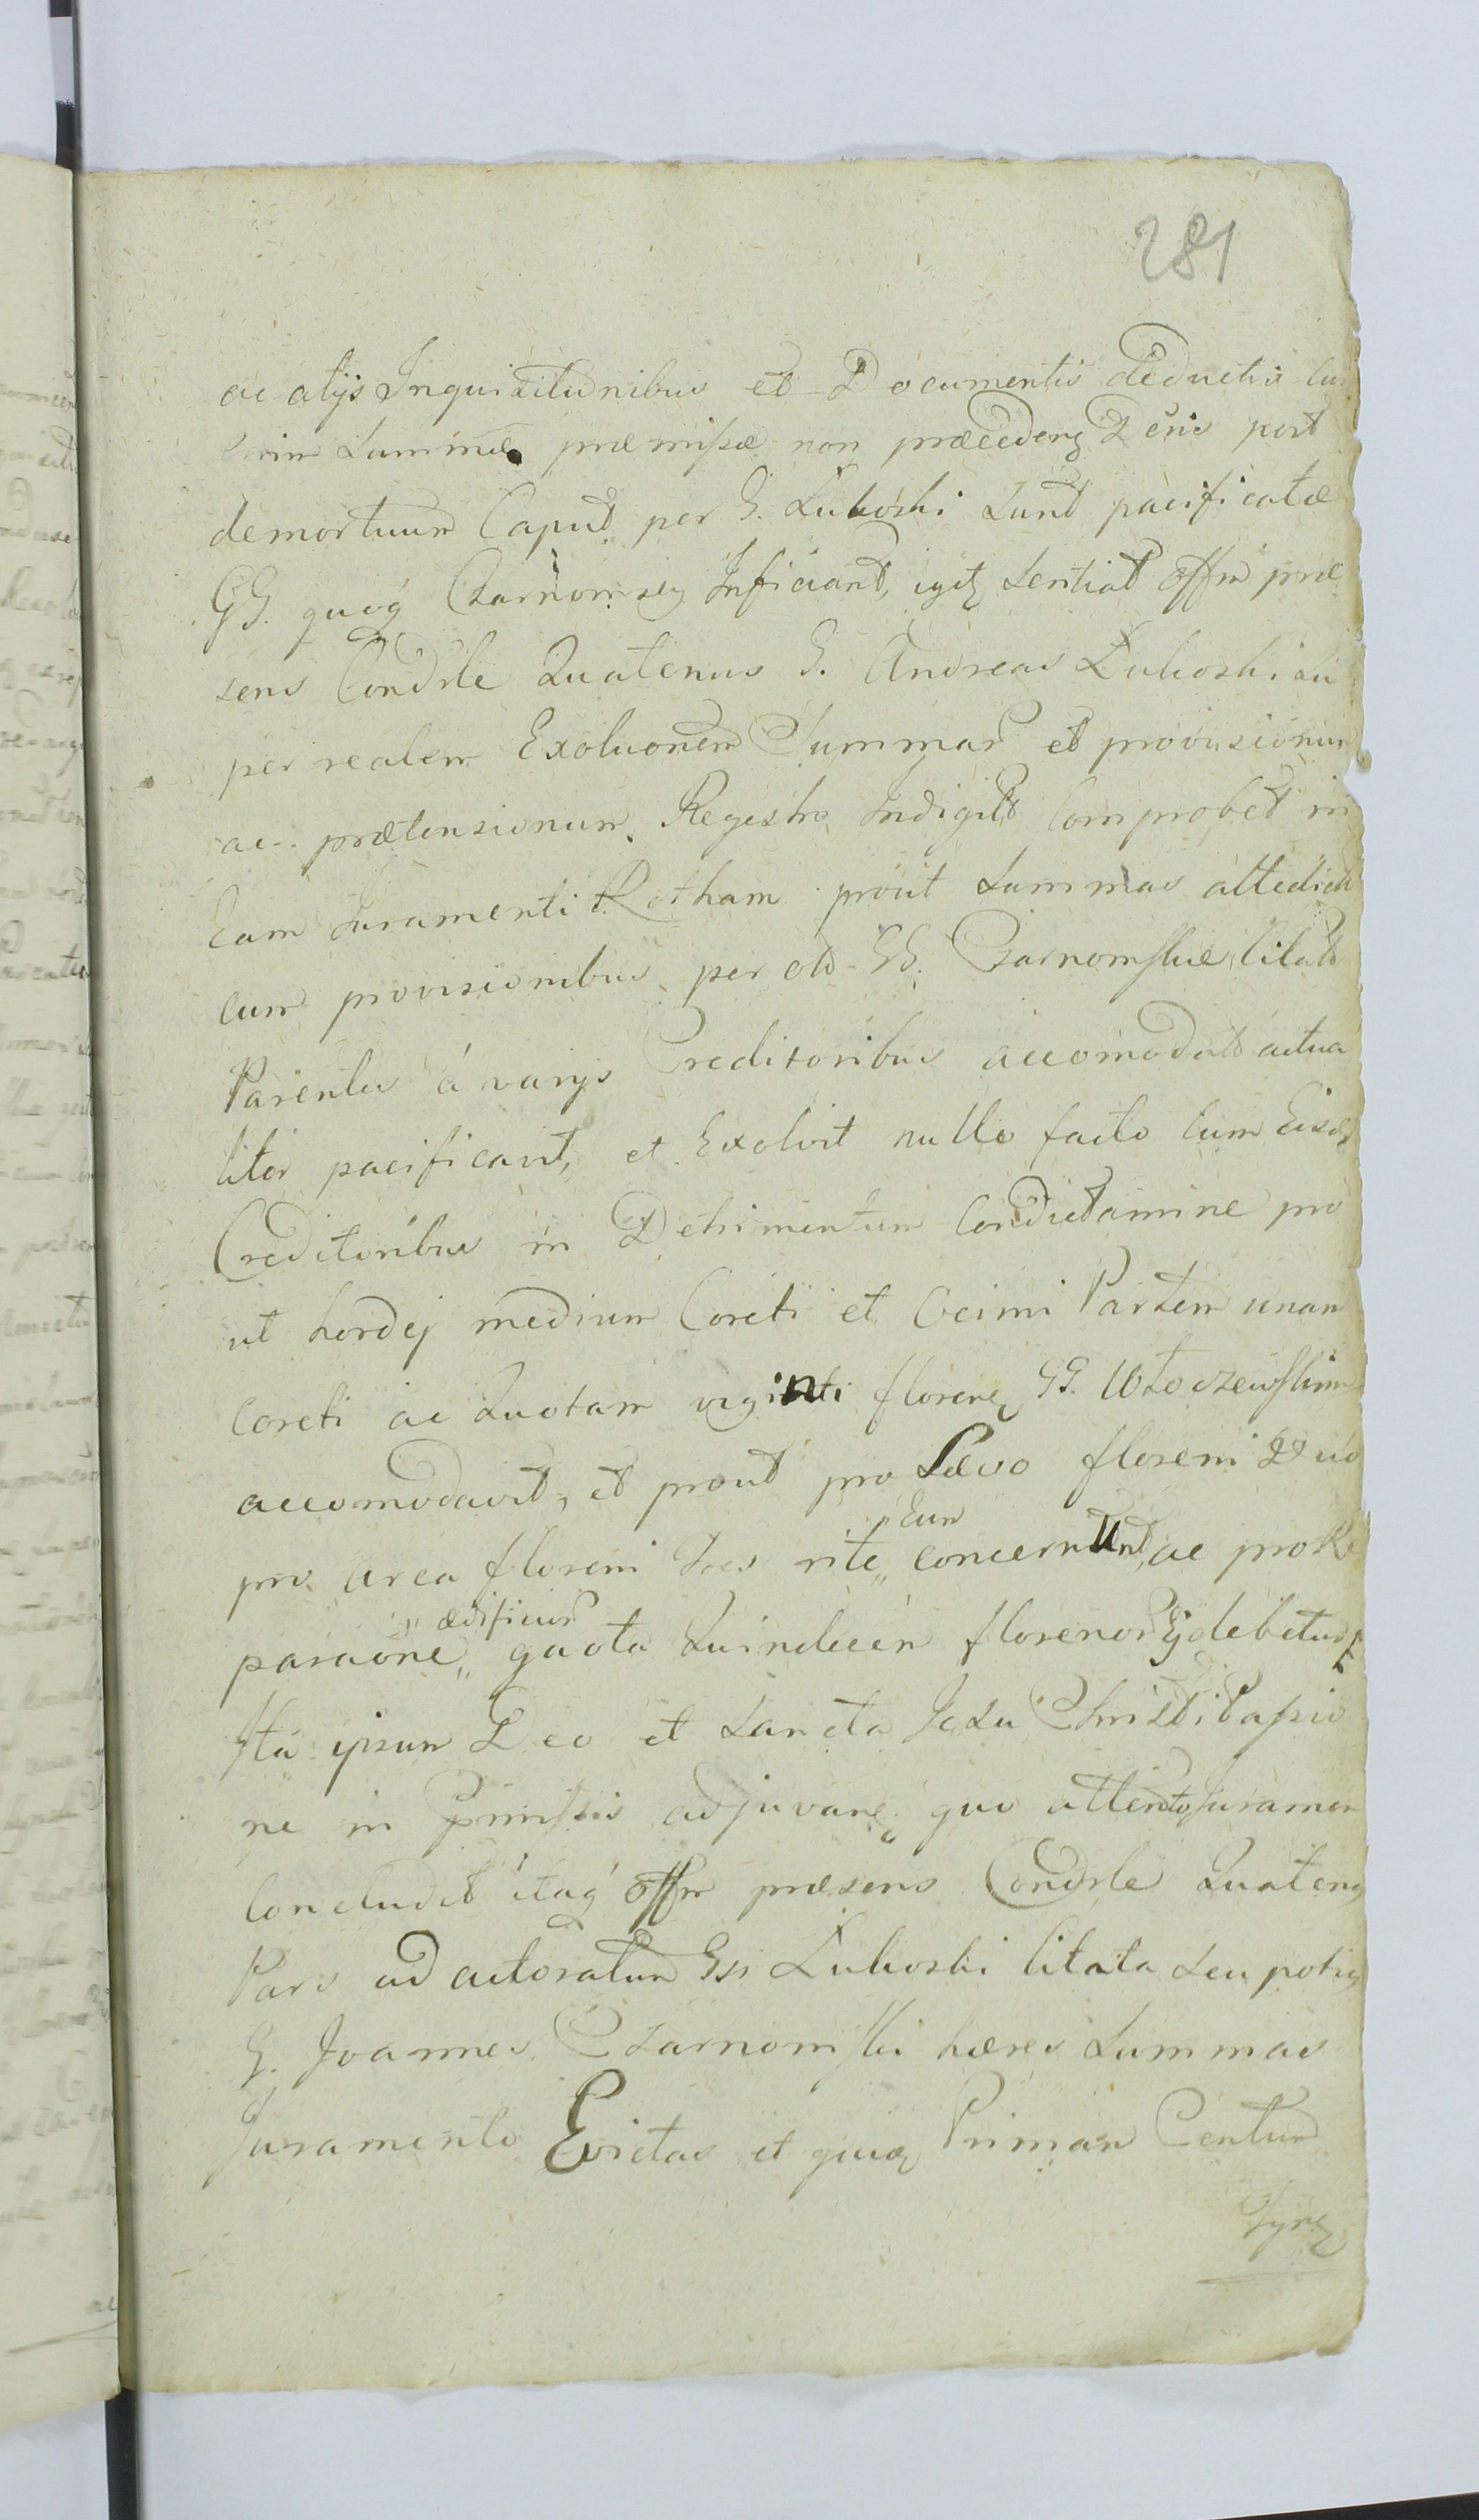 281
ac alijs Inquisitionibus et Documentis deductis
Summæ præmissæ non præceden Denis post
demortuum Caput per G. Lukoski Sunt pacificatæ
GG. quoq Czarnomscy Inficiant, igit Sentiat Offm præ
sens Condrle Quatenus G. Andreas Lukoski Su
per realem Exoluonem Summar et provisionum
ac prætensionum Regestro Indigit Comprobet in
Eam Juramenti Rotham prout Summas attedict
cum provisionibus per olo GG. Czarnomskie Citat
Parentes á varijs Creditoribus accomodat actua
liter pacificavit, et Exolvit nullo facto cum Eisd
Creditoribus in Detrimentum Condictamine pro
ut hordej medium Coreti et Cicimi Partem unam
Coreti ac Quotam viginti floren GG. Wtoczewskim
accomodavit, et prout pro Sævo floreni Duo
pro arca floreni Tres rite „ Eum concernunt, ac pro Re
paraone „ ædificior quota Quindecen florenor Ej debetur
Ita ipsum Deo et Sancta Jesu Christi Passio
ne in Pmissis adjuvan quo attento Juramen
Concludit itaq Offm præsens Condrle Quaten
Pars ad actoratum Gsi Lukoski Citata Seu potius
G. Joannes Czarnomski hæres Summas
Juramento Evictas et quidem Primam Centum